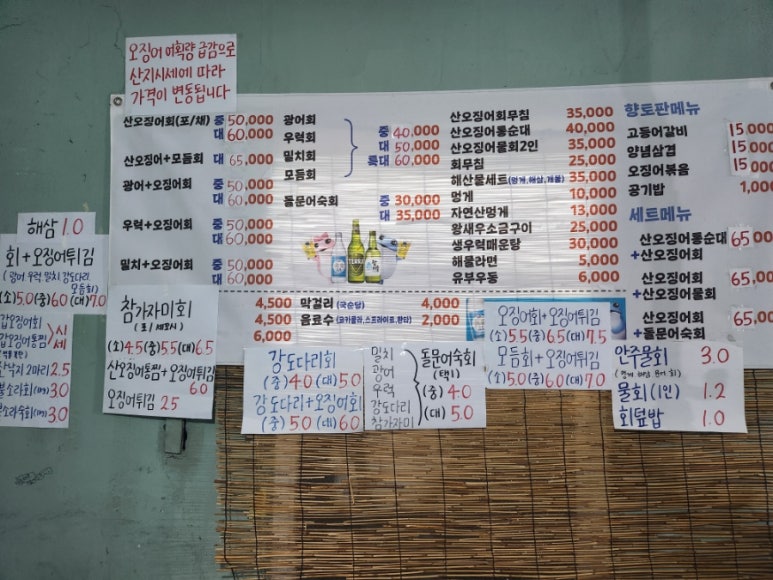 오징어 어획량 급감으로
산지시세에 따라
가격이 변동됩니다
산오징어회(포/채) 중 50,000
대 60,000
산오징어+모듬회 대 65,000
광어+오징어회 중 50,000
대 60,000
우럭+오징어회 중 50,000
대 60,000
밀치+오징어회 중 50,000
대 60,000
광어회
우럭회
밀치회
모듬회
중 40,000
대 50,000
특대 60,000
돌문어숙회 중 30,000
대 35,000
산오징어회무침 35,000
산오징어통순대 40,000
산오징어물회2인 35,000
회무침 25,000
해산물세트(멍게,해삼,개불) 35,000
멍게 10,000
자연산멍게 13,000
왕새우소금구이 25,000
생우럭매운탕 30,000
해물라면 5,000
유부우동 6,000
향토판메뉴
고등어갈비 15,000
양념삼겹 15,000
오징어볶음 15,000
공기밥 1,000
세트메뉴
산오징어통순대 65,000
+산오징어회
산오징어회 65,000
+산오징어물회
산오징어회 65,000
+돌문어숙회
4,500 막걸리 (국순당) 4,000
4,500 음료수 (코카콜라,스프라이트,환타) 2,000
6,000
TERRA
해삼 1.0
회+오징어튀김
(광어 우럭 밀치 강도다리
모듬회)
(소)5.0(중)6.0(대)7.0
갑오징어회
갑오징어통찜
시세
낙지 2마리 2.5
소라회(대) 3.0
소라숙회(대) 3.0
참가자미회
(포/세꼬시)
(소)4.5(중)5.5(대)6.5
산오징어통찜+오징어튀김
6.0
오징어튀김 2.5
강도다리회
(중)4.0 (대)5.0
강도다리+오징어회
(중) 5.0 (대) 6.0
밀치
광어
우럭
강도다리
참가자미
돌문어숙회
(택1)
(중) 4.0
(대) 5.0
오징어회+오징어튀김
(소)5.5(중)6.5(대)7.5
모듬회+오징어튀김
(소)5.0(중)6.0(대)7.0
안주물회 3.0
물회(1인) 1.2
회덮밥 1.0